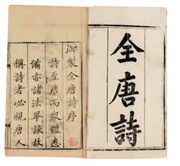 全唐詩
御製全唐詩序
詩至唐而衆體悉
備亦諸法畢該故
稱詩者必視唐人